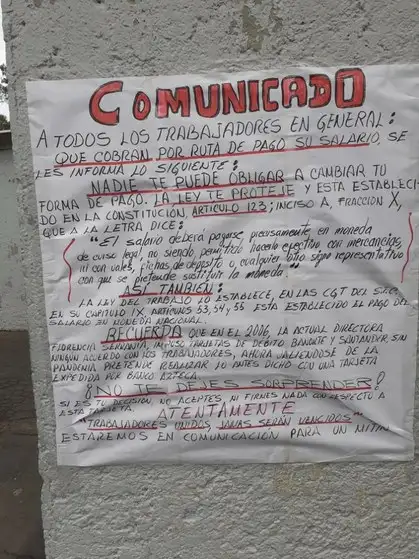 COMUNICADO
A TODOS LOS TRABAJADORES EN GENERAL:
QUE COBRAN POR RUTA DE PAGO SU SALARIO, SE
LES INFORMA LO SIGUIENTE:
NADIE TE PUEDE OBLIGAR A CAMBIAR TU
FORMA DE PAGO. LA LEY TE PROTEJE Y ESTA ESTABLECI-
DO EN LA CONSTITUCIÓN, ARTICULO 123; INCISO A, FRACCION X,
QUE A LA LETRA DICE:
"El salario deberá pagarse precisamente en moneda
de curso legal, no siendo permitido hacerlo efectivo con mercancías,
ni con vales, fichas de depósito o cualquier otro signo representativo
con que se pretenda sustituir la moneda."
ASI TAMBIEN:
LA LEY DEL TRABAJO LO ESTABLECE, EN LAS CGT DEL
EN SU CAPITULO IX, ARTICULOS 53, 54, 55 ESTA ESTABLECIDO EL PAGO DEL
SALARIO EN MONEDA NACIONAL.
RECUERDA QUE EN EL 2006, LA ACTUAL DIRECTORA
FLORENCIA SERRANIA, IMPUSO TARJETAS DE DEBITO BANORTE Y SANTANDER, SIN
NINGUN ACUERDO CON LOS TRABAJADORES, AHORA VALIENDOSE DE LA
PANDEMIA PRETENDE REALIZAR LO ANTES DICHO CON UNA TARJETA
EXPEDIDA POR BANCO AZTECA.
¡NO TE DEJES SORPRENDER!
SI ES TU DECISION NO ACEPTES, NI FIRMES NADA CON RESPECTO A
ESTA TARJETA.
ATENTAMENTE
"TRABAJADORES UNIDOS, JAMAS SERAN VENCIDOS"
ESTAREMOS EN COMUNICACIÓN PARA UN MITIN